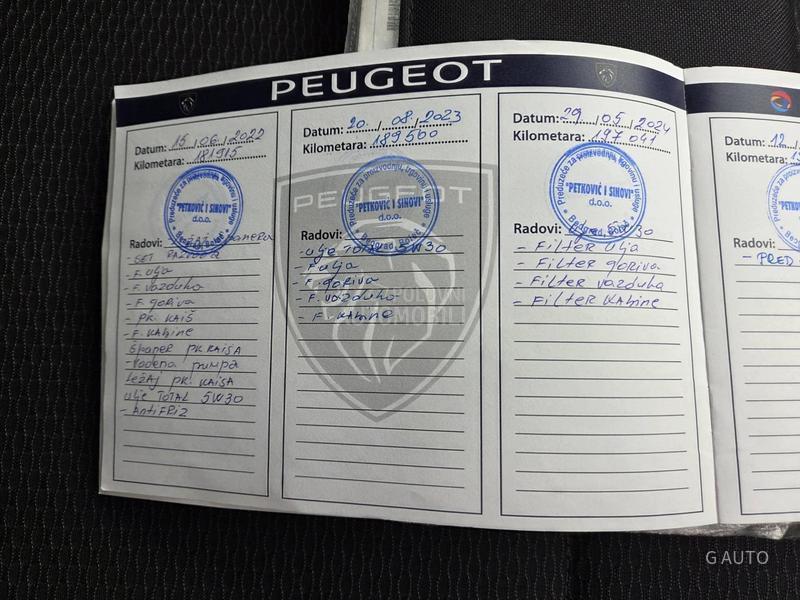 PEUGEOT
Datum: 15 / 06 / 2022
Kilometara: 181915
Preduzeće za proizvodnju, trgovinu i usluge
"PETKOVIĆ I SINOVI"
d.o.o.
Beograd, Boleč
Radovi: španera
- SET RAZVODA
- F. ulja
- F. vazduha
- F. goriva
- PK. KAIŠ
- F. KABINE
Španer PK. KAIŠA
- Vodena pumpa
Ležaj PK. KAIŠA
ulje TOTAL 5W30
- ANTIFRIZ
Datum: 20. / 08. / 2023
Kilometara: 189560
Preduzeće za proizvodnju, trgovinu i usluge
"PETKOVIĆ I SINOVI"
d.o.o.
Beograd, Boleč
Radovi:
- ulje TOTAL 5W30
- F. ulja
- F. goriva
- F. vazduha
- F. KABINE
PEUGEOT
POLOVNI
AUTOMOBILI
Datum: 29 / 05 / 2024
Kilometara: 197041
Preduzeće za proizvodnju, trgovinu i usluge
"PETKOVIĆ I SINOVI"
d.o.o.
Beograd, Boleč
Radovi: 5W30
- FILTER ulja
- FILTER goriva
- FILTER vazduha
- FILTER KABINE
Datum: 12
Kilometara:
Radovi:
- PRED
G AUTO